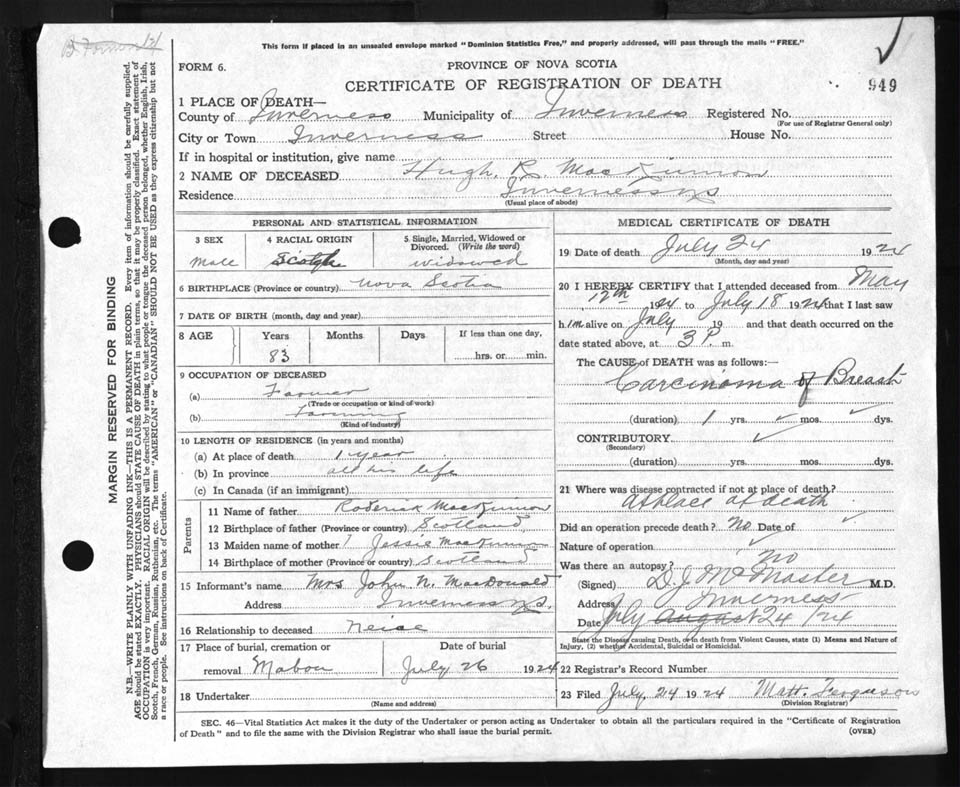 This form if placed in an unsealed envelope marked "Dominion Statistics Free," and properly addressed, will pass through the mails "FREE."
FORM 6. PROVINCE OF NOVA SCOTIA
CERTIFICATE OF REGISTRATION OF DEATH 949
1 PLACE OF DEATH—
County of Inverness Municipality of Inverness Registered No.
(For use of Registrar General only)
City or Town Inverness Street House No.
If in hospital or institution, give name
2 NAME OF DECEASED Hugh. R. MacKinnon
Residence Inverness NS
(Usual place of abode)
PERSONAL AND STATISTICAL INFORMATION
3 SEX 4 RACIAL ORIGIN 5 Single, Married, Widowed or Divorced. (Write the word)
Male Scotch widowed
6 BIRTHPLACE (Province or country) Nova Scotia
7 DATE OF BIRTH (month, day and year)
8 AGE Years Months Days If less than one day,
83 hrs. or min.
9 OCCUPATION OF DECEASED
(a) Farmer
(Trade or occupation or kind of work)
(b) Farming
(Kind of industry)
10 LENGTH OF RESIDENCE (in years and months)
(a) At place of death 1 year
(b) In province all his life
(c) In Canada (if an immigrant)
Parents
11 Name of father Roderick MacKinnon
12 Birthplace of father (Province or country) Scotland
13 Maiden name of mother Jessie MacKinnon
14 Birthplace of mother (Province or country) Scotland
15 Informant's name Mrs John N. MacDonald
Address Inverness N.S.
16 Relationship to deceased Neice
17 Place of burial, cremation or Date of burial
removal Mabou July 26 1924
18 Undertaker
(Name and address)
MEDICAL CERTIFICATE OF DEATH
19 Date of death July 24 1924
(Month, day and year)
20 I HEREBY CERTIFY that I attended deceased from May
12th 1924 to July 18 1924 that I last saw
him alive on July 19 and that death occurred on
date stated above, at 3 P. m.
The CAUSE of DEATH was as follows:—
Carcinoma of Breast
(duration) 1 yrs. mos. dys.
CONTRIBUTORY
(Secondary)
(duration) yrs. mos. dys.
21 Where was disease contracted if not at place of death?
At place of death
Did an operation precede death? No Date of
Nature of operation
Was there an autopsy? No
(Signed) D. J. McMaster M.D.
Address Inverness
Date July August 24 /24
State the Disease causing Death, or in death from Violent Causes, state (1) Means and Nature of
Injury, (2) whether Accidental, Suicidal or Homicidal.
22 Registrar's Record Number
23 Filed July 24 1924 Matt. Ferguson
(Division Registrar)
SEC. 46—Vital Statistics Act makes it the duty of the Undertaker or person acting as Undertaker to obtain all the particulars required in the "Certificate of Registration
of Death" and to file the same with the Division Registrar who shall issue the burial permit. (OVER)
MARGIN RESERVED FOR BINDING
N.B.—WRITE PLAINLY, WITH UNFADING INK—THIS IS A PERMANENT RECORD. Every item of information should be carefully supplied.
AGE should be stated EXACTLY. PHYSICIANS should STATE CAUSE OF DEATH in plain terms, so that it may be properly classified. Exact statement of
OCCUPATION is very important. RACIAL ORIGIN will be described by stating to what people or tongue the deceased person belonged, whether English, Irish,
Scotch, French, German, Russian, Ruthenian, etc. The terms "AMERICAN" or "CANADIAN" SHOULD NOT BE USED as they express citizenship but not
a race or people. See instructions on back of Certificate.